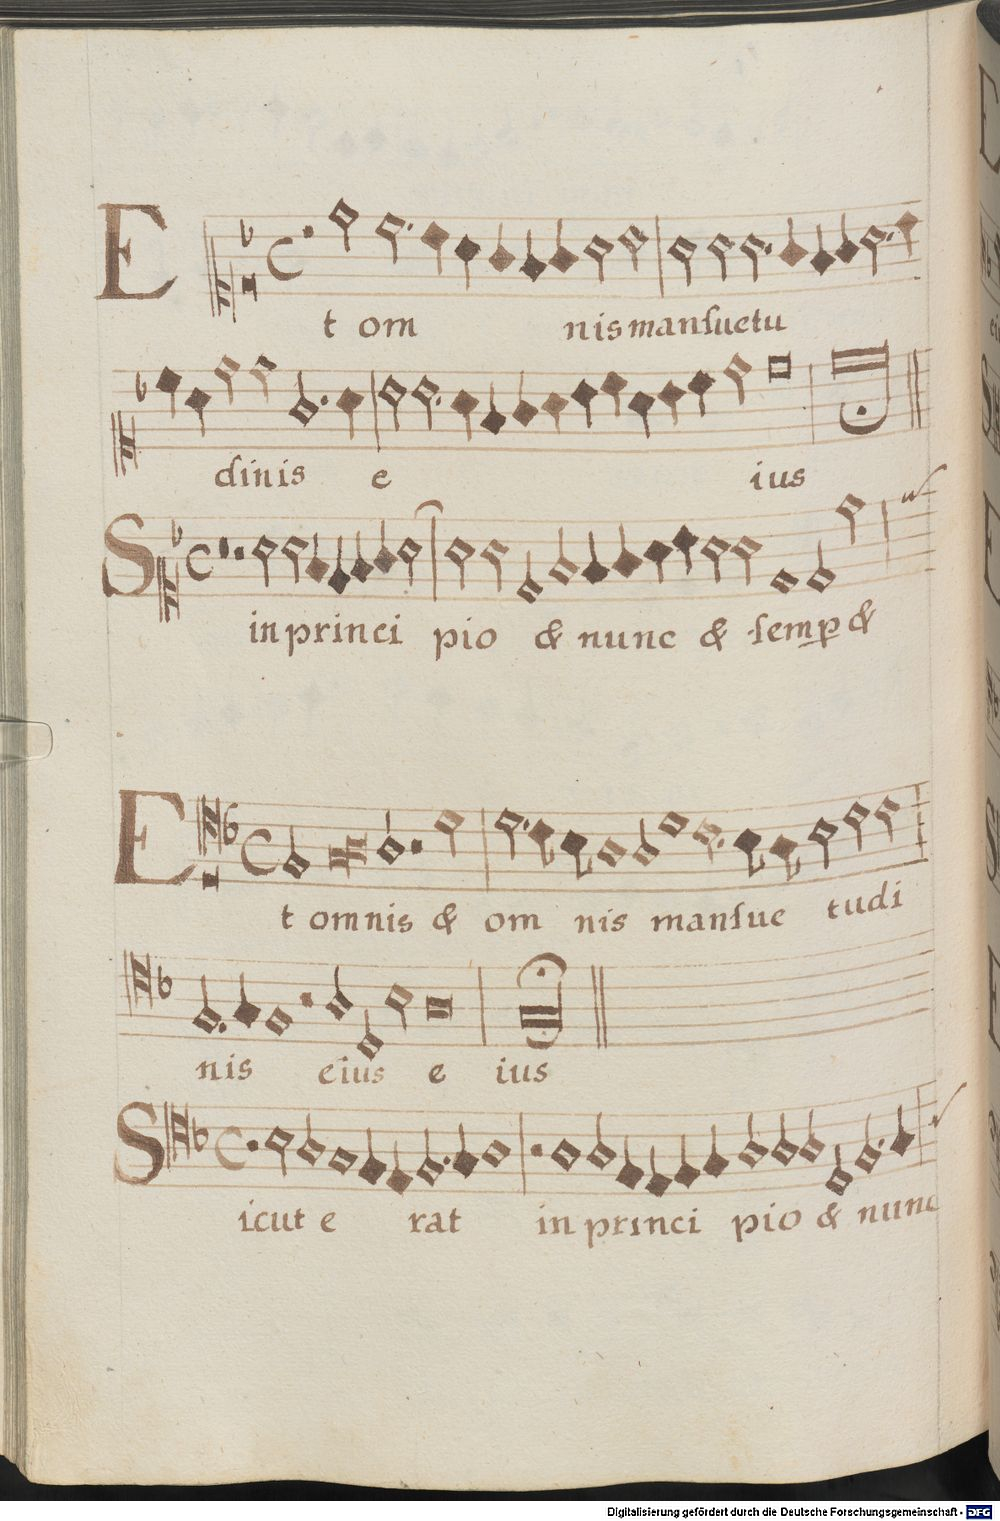 Et om nis mansuetu
dinis e ius
S in princi pio & nunc & semp &
Et omnis & om nis mansue tudi
nis eius e ius
Sicut e rat in princi pio & nunc
Digitalisierung gefördert durch die Deutsche Forschungsgemeinschaft - DFG